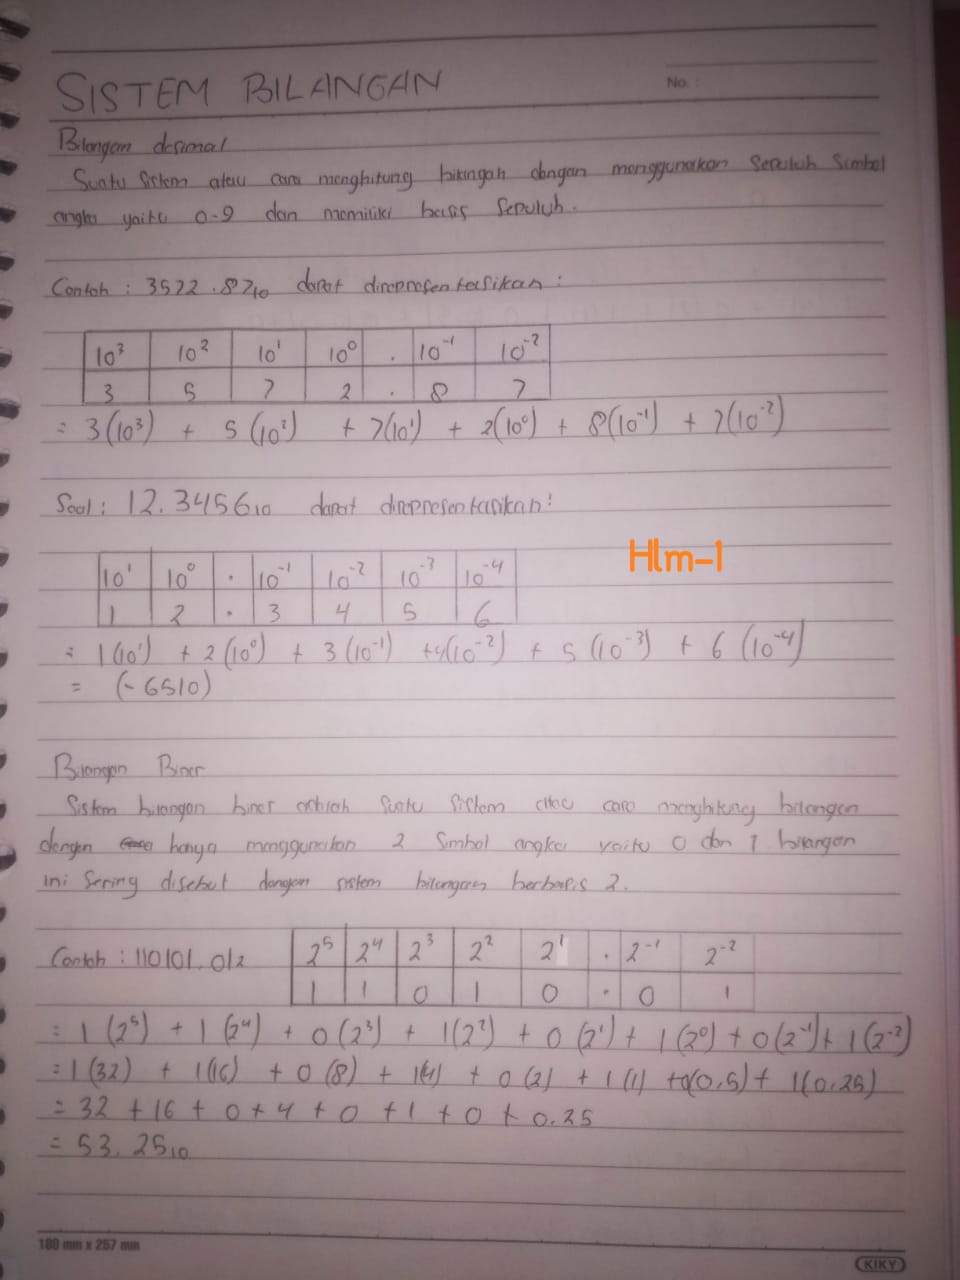 No. :
SISTEM BILANGAN
Bilangan desimal
Suatu sistem atau cara menghitung bilangan dengan menggunakan sepuluh simbol
angka yaitu 0-9 dan memiliki basis sepuluh.
Contoh : 3572.87₁₀ dapat direpresentasikan :
10³ 10² 10¹ 10⁰ . 10⁻¹ 10⁻²
3 5 7 2 . 8 7
= 3(10³) + 5(10²) + 7(10¹) + 2(10⁰) + 8(10⁻¹) + 7(10⁻²)
Soal : 12.3456₁₀ dapat direpresentasikan :
Hlm-1
10¹ 10⁰ . 10⁻¹ 10⁻² 10⁻³ 10⁻⁴
1 2 . 3 4 5 6
= 1(10¹) + 2(10⁰) + 3(10⁻¹) + 4(10⁻²) + 5(10⁻³) + 6(10⁻⁴)
= (-6510)
Bilangan Biner
Sistem bilangan biner adalah suatu sistem atau cara menghitung bilangan
dengan hanya menggunakan 2 simbol angka yaitu 0 dan 1 bilangan
ini sering disebut dengan sistem bilangan berbasis 2.
Contoh : 110101.01₂
2⁵ 2⁴ 2³ 2² 2¹ . 2⁻¹ 2⁻²
1 1 0 1 0 . 0 1
= 1(2⁵) + 1(2⁴) + 0(2³) + 1(2²) + 0(2¹) + 1(2⁰) + 0(2⁻¹) + 1(2⁻²)
= 1(32) + 1(16) + 0(8) + 1(4) + 0(2) + 1(1) + 0(0,5) + 1(0.25)
= 32 + 16 + 0 + 4 + 0 + 1 + 0 + 0.25
= 53.25₁₀
180 mm x 257 mm
KIKY